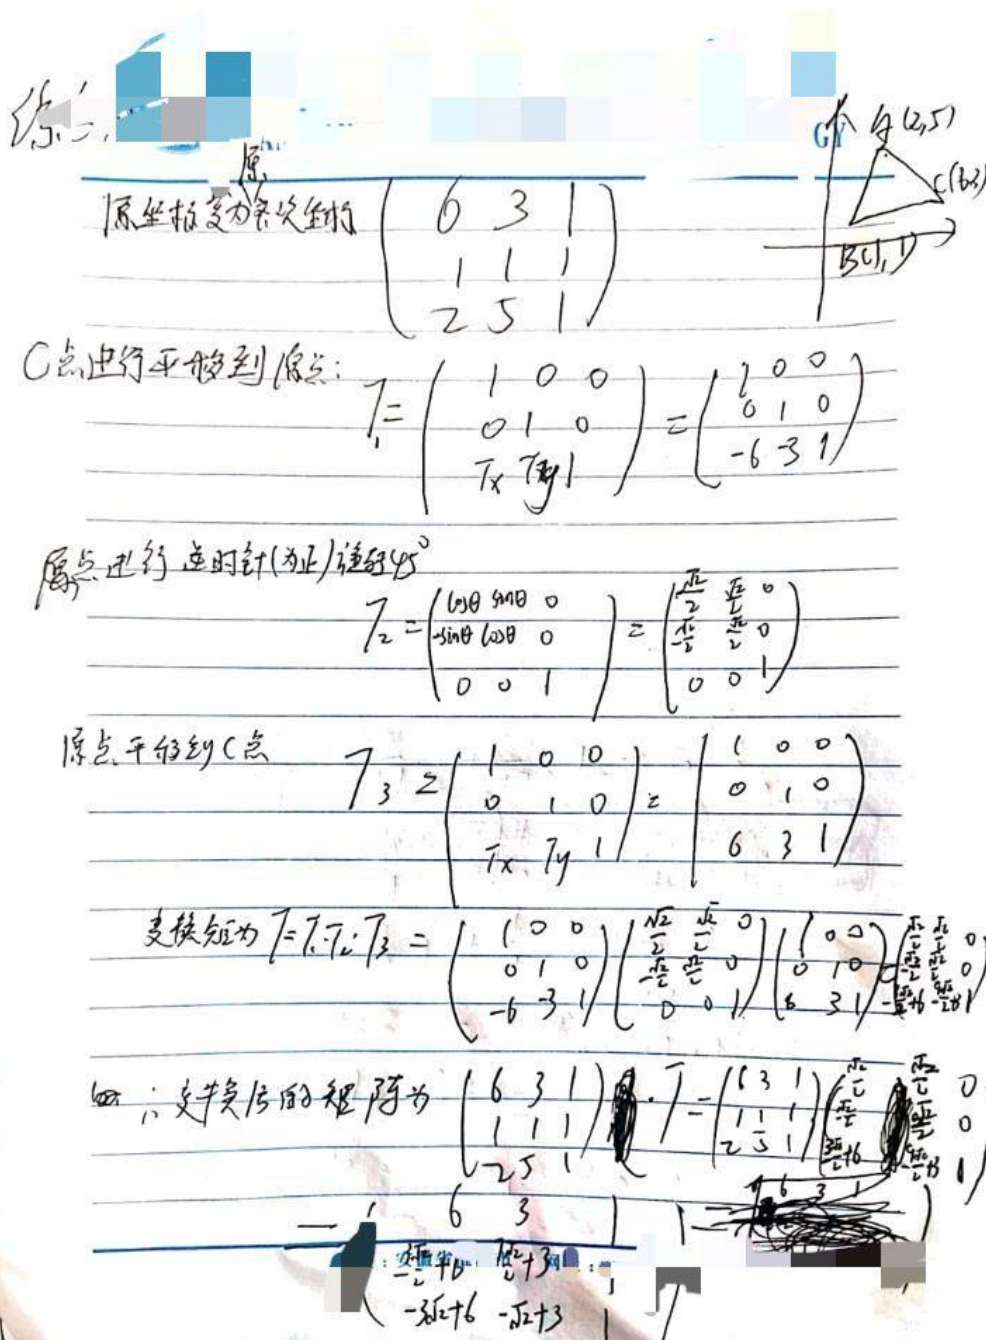 练
GY
A(2,5)
C(6,3)
B(1,1)
原
原坐标变为齐次坐标 ( 6 3 1
1 1 1
2 5 1 )
C点进行平移到原点:
T₁= ( 1 0 0
0 1 0
Tx Ty 1 ) = ( 1 0 0
0 1 0
-6 -3 1 )
原点进行逆时针(为正)旋转45°
T₂ = ( cosθ sinθ 0
-sinθ cosθ 0
0 0 1 ) = ( √2/2 √2/2 0
-√2/2 √2/2 0
0 0 1 )
原点平移到C点
T₃ = ( 1 0 0
0 1 0
Tx Ty 1 ) = ( 1 0 0
0 1 0
6 3 1 )
变换矩为 T=T₁·T₂·T₃ = ( 1 0 0
0 1 0
-6 -3 1 ) ( √2/2 √2/2 0
-√2/2 √2/2 0
0 0 1 ) ( 1 0 0
0 1 0
6 3 1 ) = ( √2/2 √2/2 0
-√2/2 √2/2 0
-3√2/2+6 -9√2/2+3 1 )
∴变换后的矩阵为 ( 6 3 1
1 1 1
2 5 1 ) · T = ( 6 3 1
1 1 1
2 5 1 ) ( √2/2 √2/2 0
-√2/2 √2/2 0
-3√2/2+6 -9√2/2+3 1 )
6 3 1
= ( 6 3 1
-3√2/2+6 -7√2/2+3 1
-3√2+6 -√2+3 1 )
安徽省 网